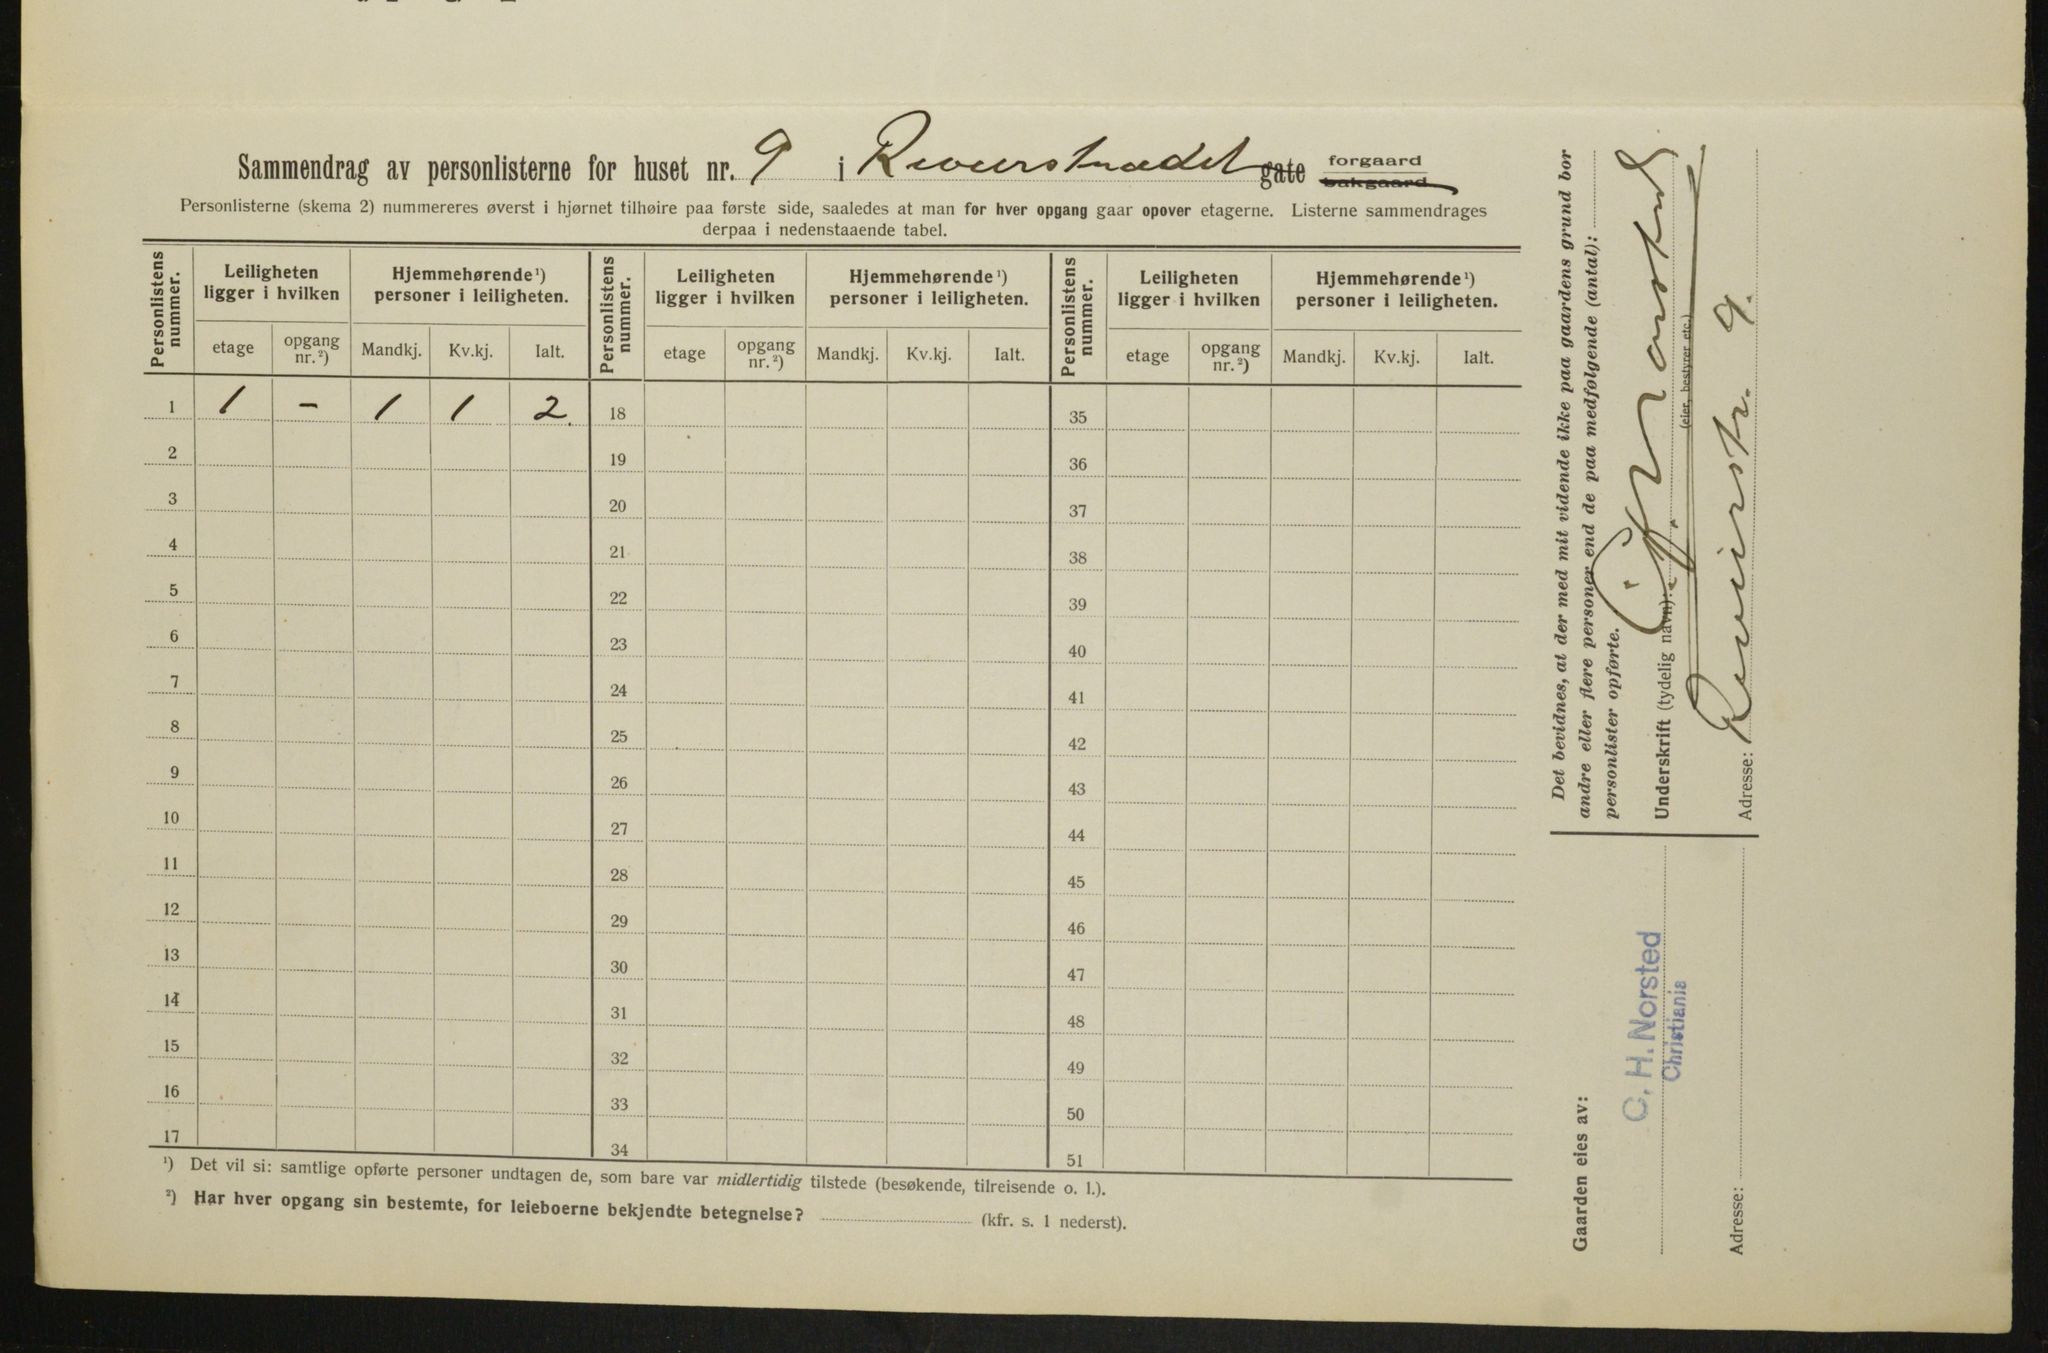 Sammendrag av personlisterne for huset nr. 9 i Revierstrædet gate forgaard bakgaard
Personlisterne (skema 2) nummereres øverst i hjørnet tilhøire paa første side, saaledes at man for hver opgang gaar opover etagerne. Listerne sammendrages
derpaa i nedenstaaende tabel.
Personlistens nummer. Leiligheten ligger i hvilken Hjemmehørende¹) personer i leiligheten. Personlistens nummer. Leiligheten ligger i hvilken Hjemmehørende¹) personer i leiligheten. Personlistens nummer. Leiligheten ligger i hvilken Hjemmehørende¹) personer i leiligheten.
etage opgang nr.²) Mandkj. Kv.kj. Ialt. etage opgang nr.²) Mandkj. Kv.kj. Ialt. etage opgang nr.²) Mandkj. Kv.kj. Ialt.
1 1 – 1 1 2. 18 35
2 19 36
3 20 37
4 21 38
5 22 39
6 23 40
7 24 41
8 25 42
9 26 43
10 27 44
11 28 45
12 29 46
13 30 47
14 31 48
15 32 49
16 33 50
17 34 51
¹) Det vil si: samtlige opførte personer undtagen de, som bare var midlertidig tilstede (besøkende, tilreisende o. l.).
²) Har hver opgang sin bestemte, for leieboerne bekjendte betegnelse? (kfr. s. 1 nederst).
Det bevidnes, at der med mit vidende ikke paa gaardens grund bor
andre eller flere personer end de paa medfølgende (antal):
personlister opførte.
Underskrift (tydelig navn):
(eier, bestyrer etc.)
Adresse: Revierstr. 9.
Gaarden eies av:
C. H. Norsted
Christiania
Adresse: